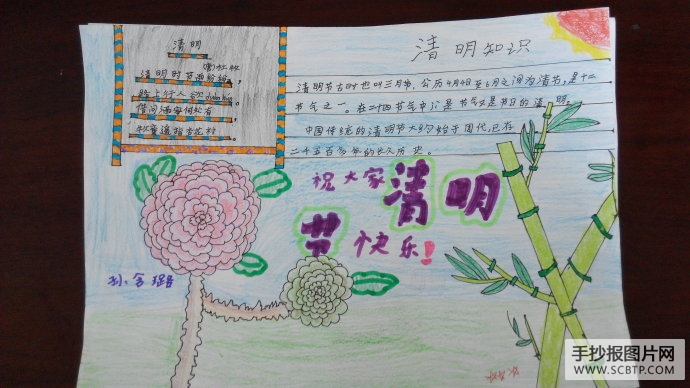 清明
(唐)杜牧
清明时节雨纷纷,
路上行人欲断魂。
借问酒家何处有,
牧童遥指杏花村
清明知识
清明节古时也叫三月节,公历4月4日至6日之间为清明节,是二十
节气之一。在二十四节气中,既是节气又是节日的清明。
中国传统的清明节大约始于周代,已有
二千五百多年的长久历史。
祝大家清明
节快乐!
孙含璐
手抄报图片网
WWW.SCBTP.COM